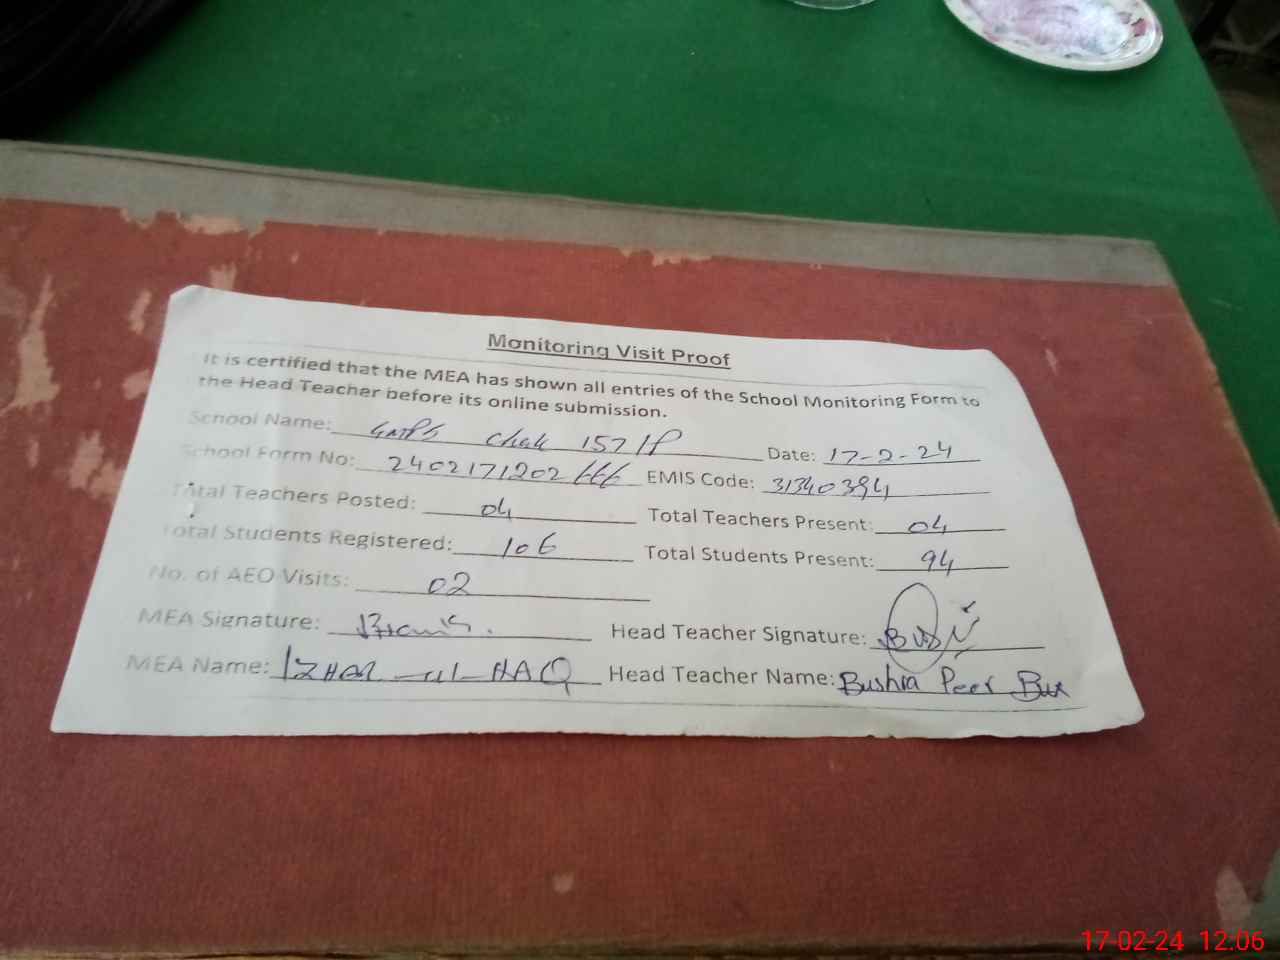 Monitoring Visit Proof
It is certified that the MEA has shown all entries of the School Monitoring Form to
the Head Teacher before its online submission.
School Name: GMPS Chak 157/P Date: 17-2-24
School Form No: 2402171202666 EMIS Code: 31340394
Total Teachers Posted: 04 Total Teachers Present: 04
Total Students Registered: 106 Total Students Present: 94
No. of AEO Visits: 02
MEA Signature: Head Teacher Signature:
MEA Name: IZHAR-ul-HAQ Head Teacher Name: Bushra Peer Bux
17-02-24 12:06